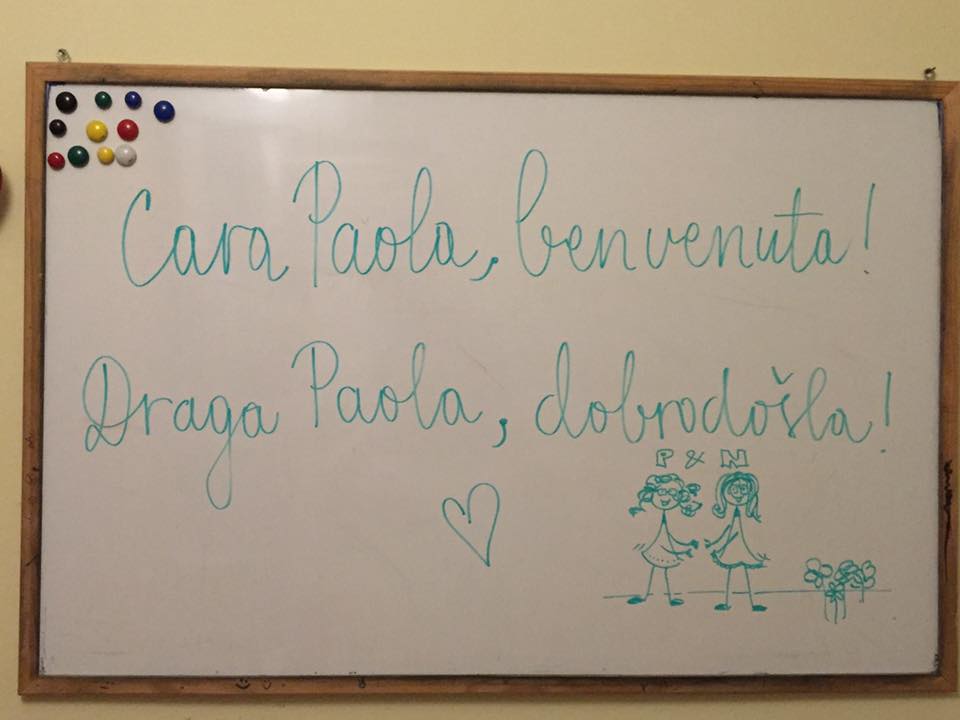 Cara Paola, benvenuta!
Draga Paola, dobrodošla!
P & N